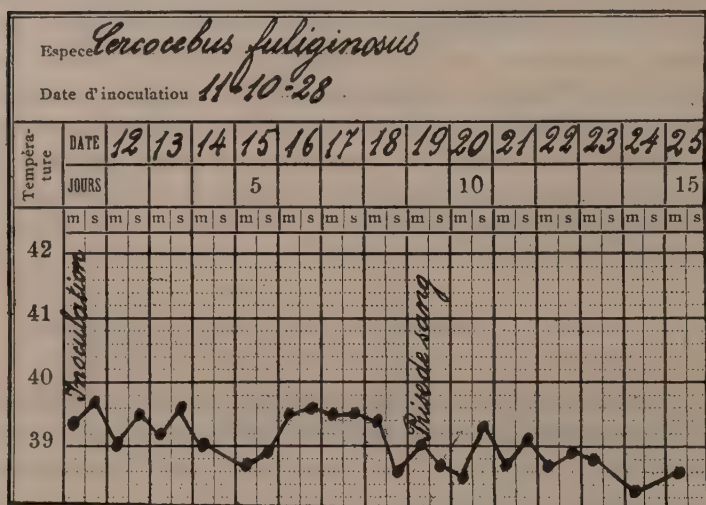 Espece Cercocebus fuliginosus
Date d'inoculatiou 11-10-28
Tempèra-
ture
DATE 12 13 14 15 16 17 18 19 20 21 22 23 24 25
JOURS 5 10 15
m s m s m s m s m s m s m s m s m s m s m s m s m s m s m s
42
41
40
39
Inoculation
Prise de sang